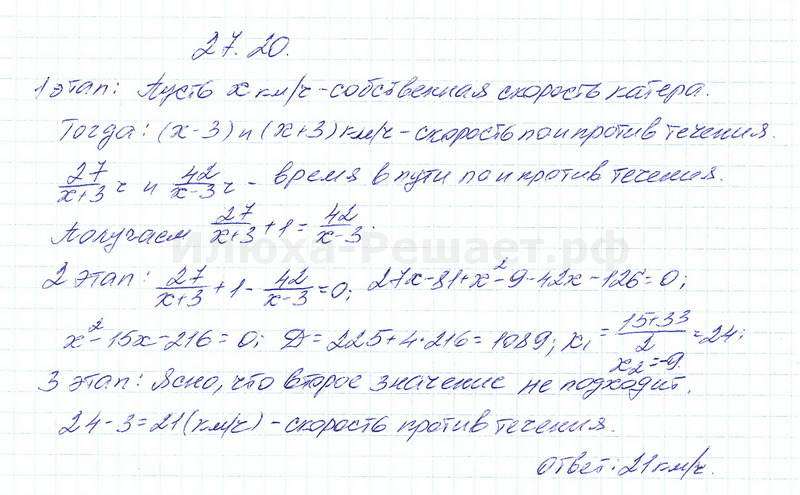 27.20.
1 этап: Пусть x км/ч - собственная скорость катера.
Тогда: (x-3) и (x+3) км/ч - скорость по и против течения.
27/(x+3) ч и 42/(x-3) ч - время в пути по и против течения.
Получаем 27/(x+3) + 1 = 42/(x-3).
Илюха-Решает.рф
2 этап: 27/(x+3) + 1 - 42/(x-3) = 0; 27x-81+x²-9-42x-126=0;
x²-15x-216=0; Д=225+4·216=1089; x₁=(15+33)/2=24;
x₂=-9.
3 этап: Ясно, что второе значение не подходит.
24-3=21(км/ч) - скорость против течения.
Ответ: 21 км/ч.